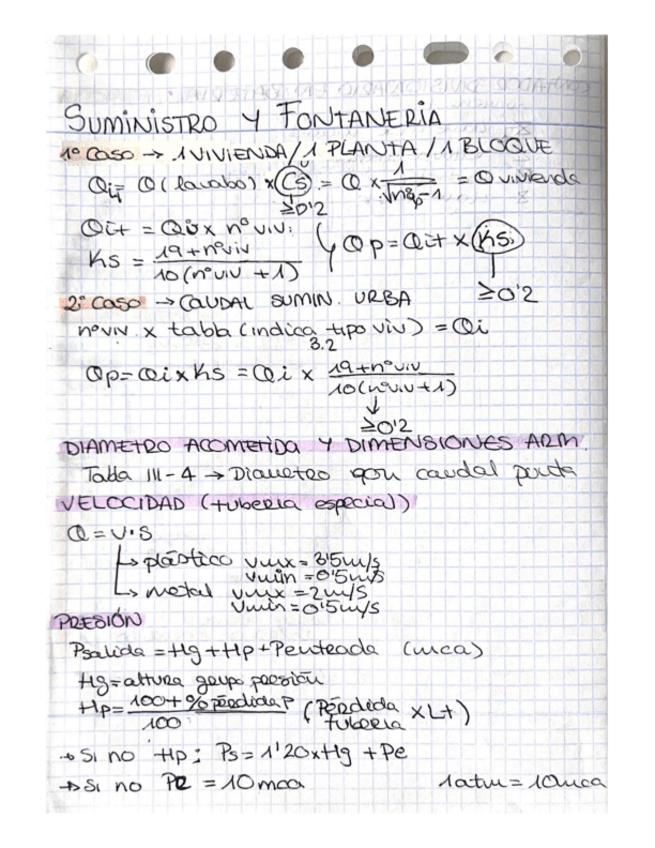 SUMINISTRO Y FONTANERÍA
1º CASO → 1 VIVIENDA / 1 PLANTA / 1 BLOQUE
Qi = Q (lavabo) x Cs = Q x 1/√nºg-1 = Q vivienda
≥0'2
Qit = Qi x nº viv.
Ks = 19+nºviv / 10(nºviv +1)
Qp = Qit x Ks
≥0'2
2º CASO → CAUDAL SUMIN. URBA
nºviv. x tabla (indica tipo viv) = Qi
3.2
Qp = Qi x Ks = Qi x 19+nºviv / 10(nºviv+1)
≥0'2
DIAMETRO ACOMETIDA Y DIMENSIONES ARM.
Tabla III-4 → Diametro con caudal punta
VELOCIDAD (tuberia especial)
Q = V·S
→ plástico Vmax = 3'5m/s
Vmin = 0'5m/s
→ metal Vmax = 2m/s
Vmin = 0'5m/s
PRESIÓN
Psalida = Hg + Hp + Pentrada (mca)
Hg = altura grupo presión
Hp = 100+%pérdida P / 100 (Pérdida tuberia x Lt)
→ Si no Hp: Ps = 1'20xHg + Pe
→ Si no Pe = 10mca 1atm = 10mca